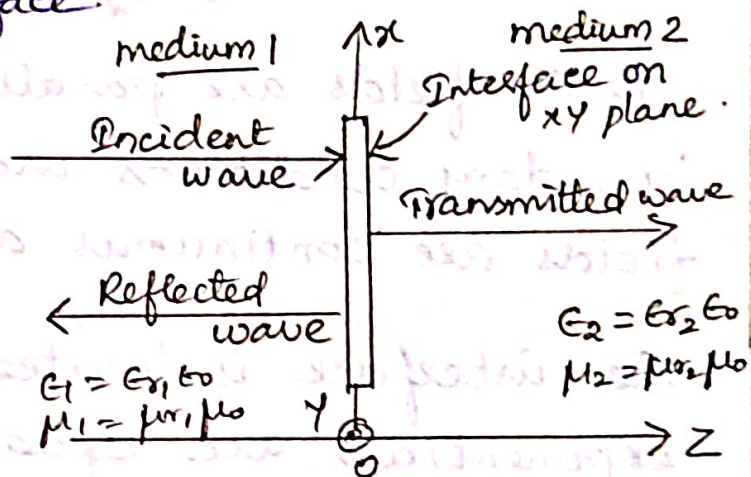 face.
medium 1
x
medium 2
Interface on
xy plane.
Incident
wave
Transmitted wave
Reflected
wave
ϵ1 = ϵr1 ϵ0
μ1 = μr1 μ0
ϵ2 = ϵr2 ϵ0
μ2 = μr2 μ0
Y
O
Z